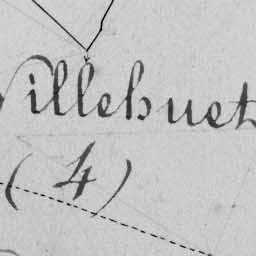 Villehuet
(4)